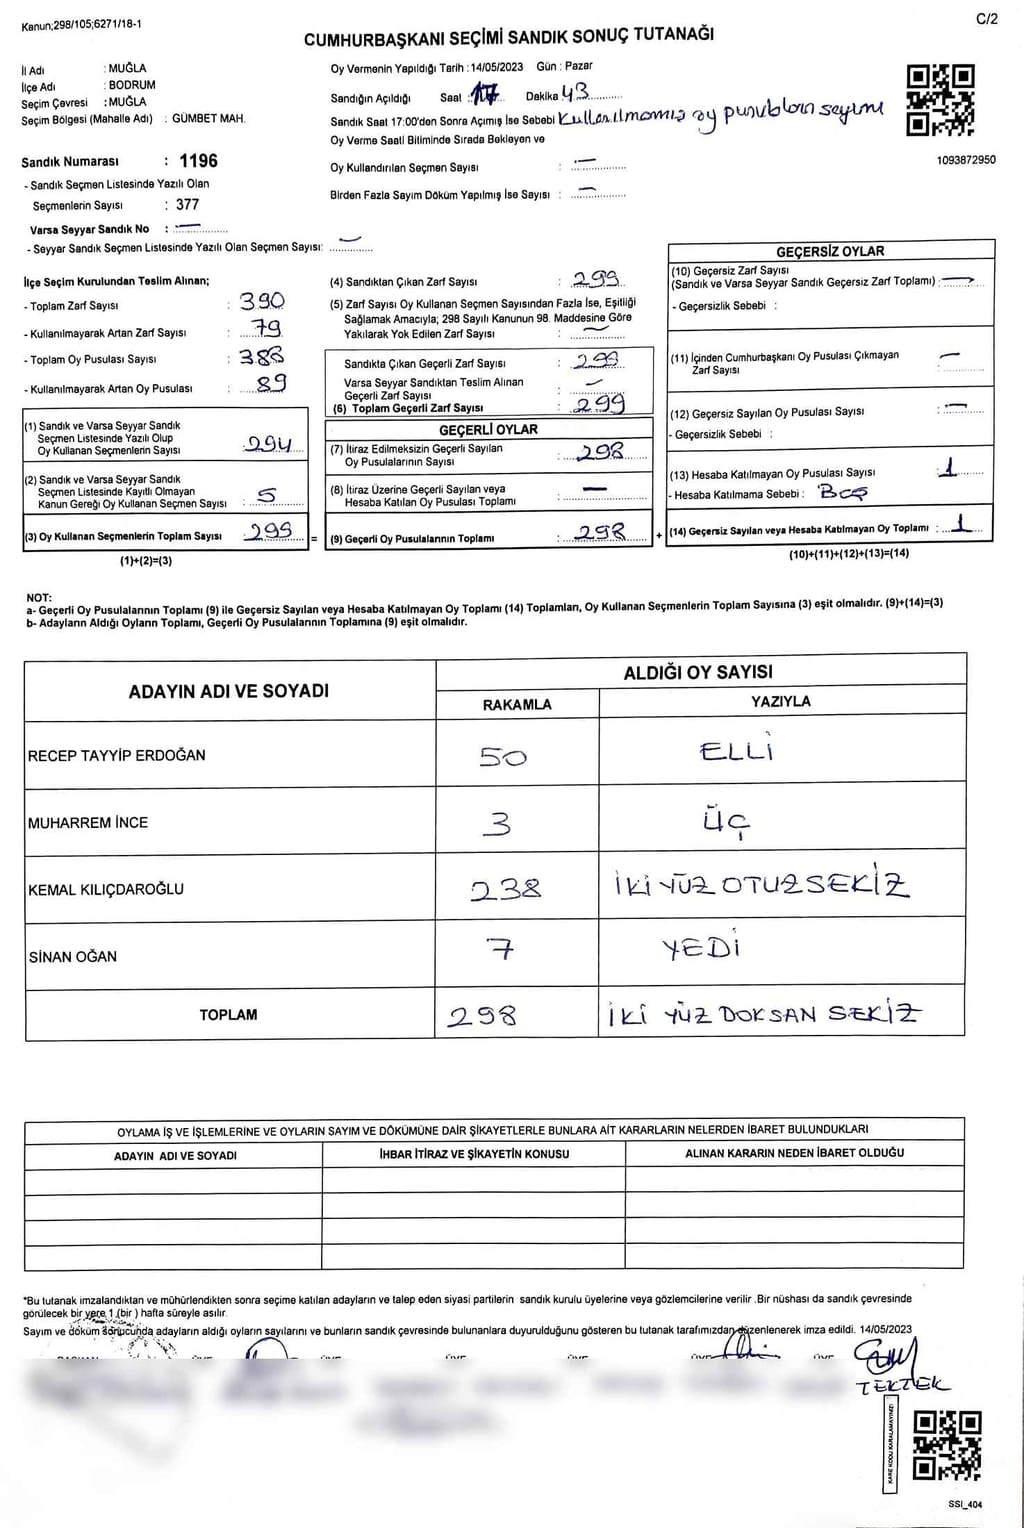 Kanun;298/105;6271/18-1
C/2
CUMHURBAŞKANI SEÇİMİ SANDIK SONUÇ TUTANAĞI
İl Adı : MUĞLA
İlçe Adı : BODRUM
Seçim Çevresi : MUĞLA
Seçim Bölgesi (Mahalle Adı) : GÜMBET MAH.
Oy Vermenin Yapıldığı Tarih : 14/05/2023 Gün : Pazar
Sandığın Açıldığı Saat : 17 Dakika 43
Sandık Saat 17:00'den Sonra Açımış İse Sebebi Kullanılmamış oy pusulaları sayımı
Oy Verme Saati Bitiminde Sırada Bekleyen ve
Oy Kullandırılan Seçmen Sayısı : —
Birden Fazla Sayım Döküm Yapılmış İse Sayısı : —
1093872950
Sandık Numarası : 1196
- Sandık Seçmen Listesinde Yazılı Olan
Seçmenlerin Sayısı : 377
Varsa Seyyar Sandık No : —
- Seyyar Sandık Seçmen Listesinde Yazılı Olan Seçmen Sayısı: —
İlçe Seçim Kurulundan Teslim Alınan;
- Toplam Zarf Sayısı : 390
- Kullanılmayarak Artan Zarf Sayısı : 79
- Toplam Oy Pusulası Sayısı : 388
- Kullanılmayarak Artan Oy Pusulası : 89
(1) Sandık ve Varsa Seyyar Sandık
Seçmen Listesinde Yazılı Olup
Oy Kullanan Seçmenlerin Sayısı : 294
(2) Sandık ve Varsa Seyyar Sandık
Seçmen Listesinde Kayıtlı Olmayan
Kanun Gereği Oy Kullanan Seçmen Sayısı : 5
(3) Oy Kullanan Seçmenlerin Toplam Sayısı : 299 =
(1)+(2)=(3)
(4) Sandıktan Çıkan Zarf Sayısı : 299
(5) Zarf Sayısı Oy Kullanan Seçmen Sayısından Fazla İse, Eşitliği
Sağlamak Amacıyla; 298 Sayılı Kanunun 98. Maddesine Göre
Yakılarak Yok Edilen Zarf Sayısı : —
Sandıkta Çıkan Geçerli Zarf Sayısı : 299
Varsa Seyyar Sandıktan Teslim Alınan
Geçerli Zarf Sayısı : —
(6) Toplam Geçerli Zarf Sayısı : 299
GEÇERLİ OYLAR
(7) İtiraz Edilmeksizin Geçerli Sayılan
Oy Pusulalarının Sayısı : 298
(8) İtiraz Üzerine Geçerli Sayılan veya
Hesaba Katılan Oy Pusulası Toplamı : —
(9) Geçerli Oy Pusulalarının Toplamı : 298 +
GEÇERSİZ OYLAR
(10) Geçersiz Zarf Sayısı
(Sandık ve Varsa Seyyar Sandık Geçersiz Zarf Toplamı) : —
- Geçersizlik Sebebi :
(11) İçinden Cumhurbaşkanı Oy Pusulası Çıkmayan
Zarf Sayısı : —
(12) Geçersiz Sayılan Oy Pusulası Sayısı : —
- Geçersizlik Sebebi :
(13) Hesaba Katılmayan Oy Pusulası Sayısı : 1
- Hesaba Katılmama Sebebi : Boş
(14) Geçersiz Sayılan veya Hesaba Katılmayan Oy Toplamı : 1
(10)+(11)+(12)+(13)=(14)
NOT:
a- Geçerli Oy Pusulalarının Toplamı (9) ile Geçersiz Sayılan veya Hesaba Katılmayan Oy Toplamı (14) Toplamları, Oy Kullanan Seçmenlerin Toplam Sayısına (3) eşit olmalıdır. (9)+(14)=(3)
b- Adayların Aldığı Oyların Toplamı, Geçerli Oy Pusulalarının Toplamına (9) eşit olmalıdır.
ADAYIN ADI VE SOYADI
ALDIĞI OY SAYISI
RAKAMLA YAZIYLA
RECEP TAYYİP ERDOĞAN 50 ELLİ
MUHARREM İNCE 3 ÜÇ
KEMAL KILIÇDAROĞLU 238 İKİ YÜZ OTUZSEKİZ
SİNAN OĞAN 7 YEDİ
TOPLAM 298 İKİ YÜZ DOKSAN SEKİZ
OYLAMA İŞ VE İŞLEMLERİNE VE OYLARIN SAYIM VE DÖKÜMÜNE DAİR ŞİKAYETLERLE BUNLARA AİT KARARLARIN NELERDEN İBARET BULUNDUKLARI
ADAYIN ADI VE SOYADI İHBAR İTİRAZ VE ŞİKAYETİN KONUSU ALINAN KARARIN NEDEN İBARET OLDUĞU
*Bu tutanak imzalandıktan ve mühürlendikten sonra seçime katılan adayların ve talep eden siyasi partilerin sandık kurulu üyelerine veya gözlemcilerine verilir .Bir nüshası da sandık çevresinde
görülecek bir yere 1 (bir ) hafta süreyle asılır.
Sayım ve döküm sonucunda adayların aldığı oyların sayılarını ve bunların sandık çevresinde bulunanlara duyurulduğunu gösteren bu tutanak tarafımızdan düzenlenerek imza edildi. 14/05/2023
TEKTEK
KARE KODU KARALAMAYINIZ!
SSI_404